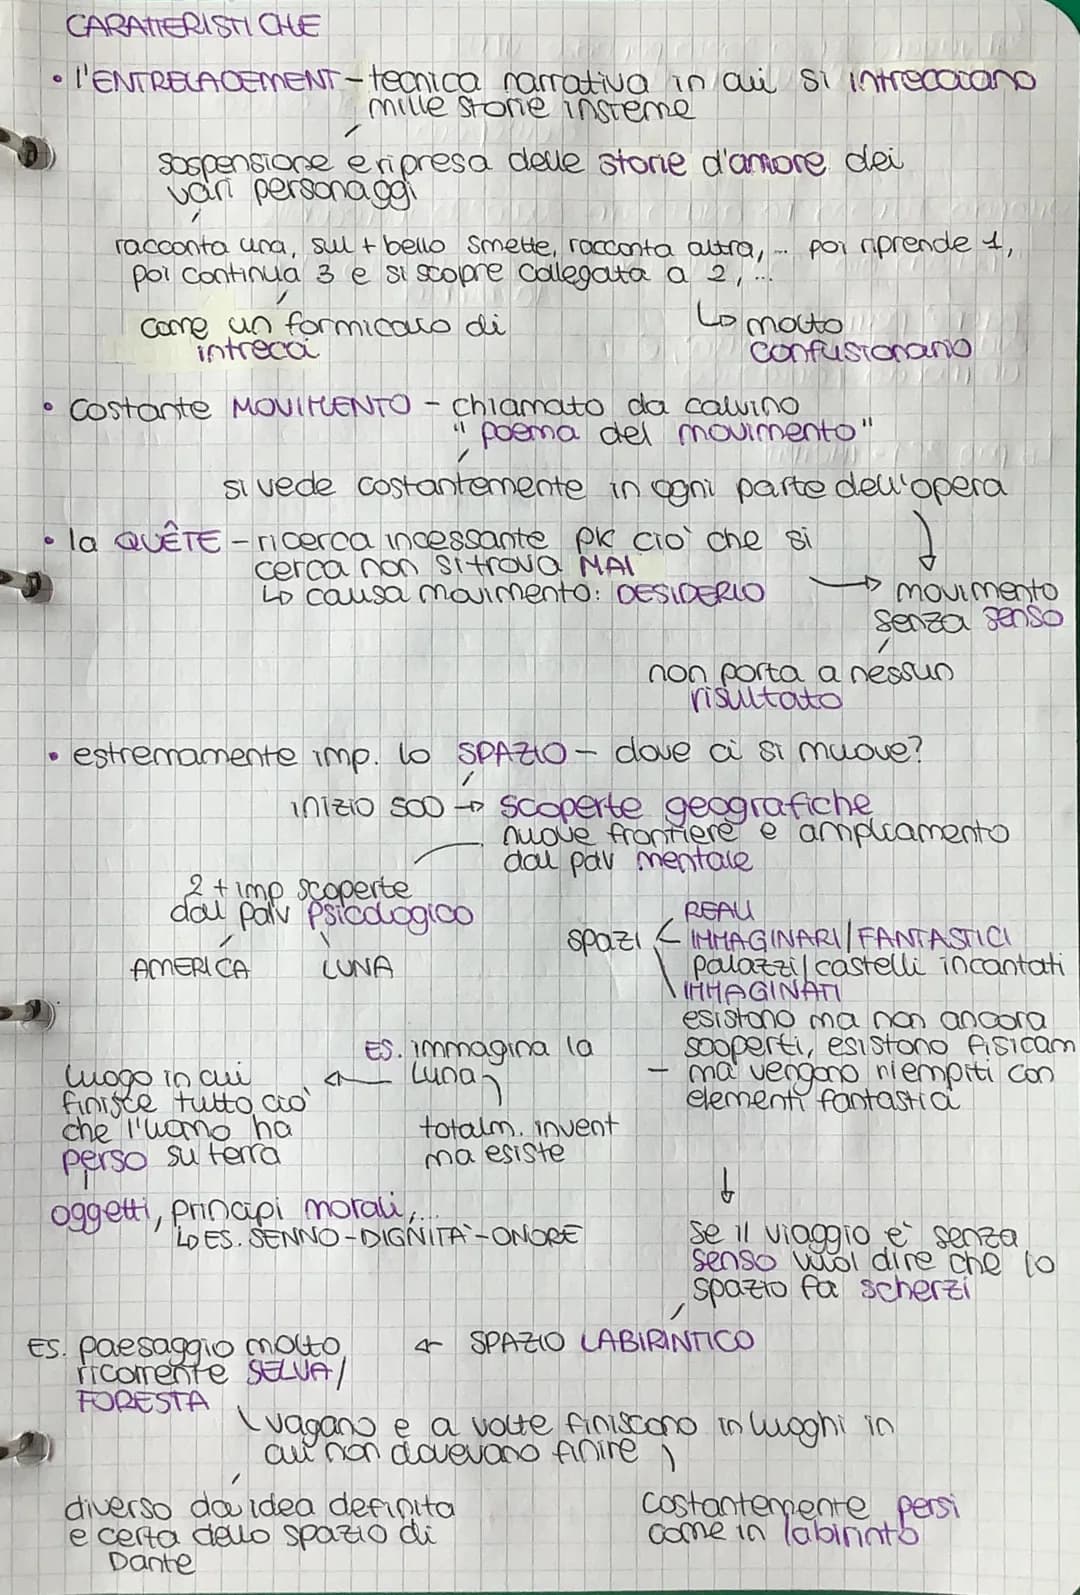 CARATTERISTICHE
• l'ENTRELACEMENT - tecnica narrativa in cui si intrecciano
mille storie insieme
sospensione e ripresa delle storie d'amore dei
vari personaggi
racconta una, sul + bello smette, racconta altra, ... poi riprende 1,
poi continua 3 e si scopre collegata a 2, ...
come un formicaio di
intrecci
↳ molto
confusionario
• costante MOVIMENTO - chiamato da calvino
"poema del movimento"
si vede costantemente in ogni parte dell'opera
• la QUÊTE - ricerca incessante pk ciò che si
cerca non si trova MAI
↳ causa movimento: DESIDERIO
→ movimento
senza senso
non porta a nessun
risultato
• estremamente imp. lo SPAZIO - dove ci si muove?
inizio 500 → scoperte geografiche
nuove frontiere e ampliamento
dal pdv mentale
2 + imp scoperte
dal pdv psicologico
AMERICA LUNA
spazi
REALI
IMMAGINARI/FANTASTICI
palazzi/castelli incantati
IMMAGINATI
esistono ma non ancora
scoperti, esistono fisicam
- ma vengono riempiti con
elementi fantastici
ES. immagina la
luna
totalm. invent
ma esiste
luogo in cui
finisce tutto ciò
che l'uomo ha
perso su terra
oggetti, principi morali, ...
↳ ES. SENNO - DIGNITA' - ONORE
↓
se il viaggio è senza
senso vuol dire che lo
spazio fa scherzi
← SPAZIO LABIRINTICO
ES. paesaggio molto
ricorrente SELVA/
FORESTA
vagano e a volte finiscono in luoghi in
cui non dovevano finire
diverso da idea definita
e certa dello spazio di
Dante
costantemente persi
come in labirinto